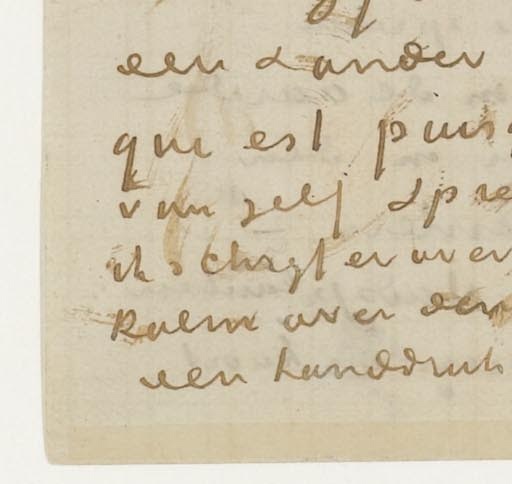 een ander
que est puis
van zelf spre
ik schrijf er over
over den
een handdruk